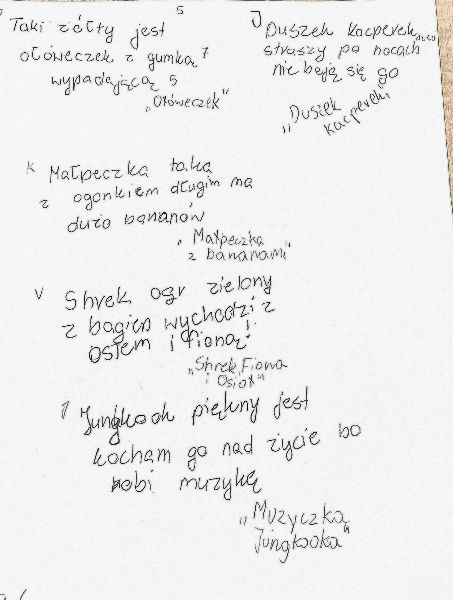 5
Taki żółty jest
ołóweczek z gumką 7
wypadającą 5
„Ołóweczek"
Duszek Kacperek
straszy po nocach
nie boją się go
„Duszek
Kacperek"
K Małpeczka taka
z ogonkiem długim ma
dużo bananów
„Małpeczka
z bananami"
V Shrek ogr zielony
z bagien wychodzi z
Osłem i Fioną!
„Shrek, Fiona
i Osioł"
Jungkook piękny jest
kocham go nad życie bo
robi muzykę
„Muzyczka
Jungkooka"